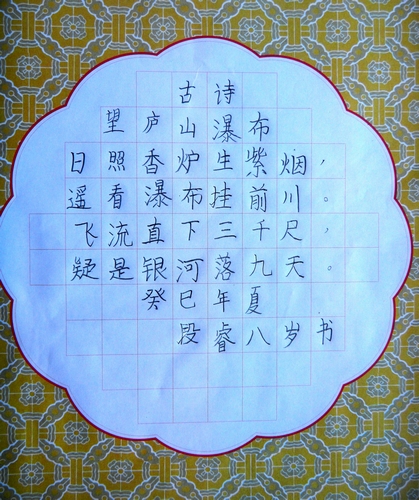 古诗
望庐山瀑布
日照香炉生紫烟，
遥看瀑布挂前川。
飞流直下三千尺，
疑是银河落九天。
癸巳年夏
段睿八岁书